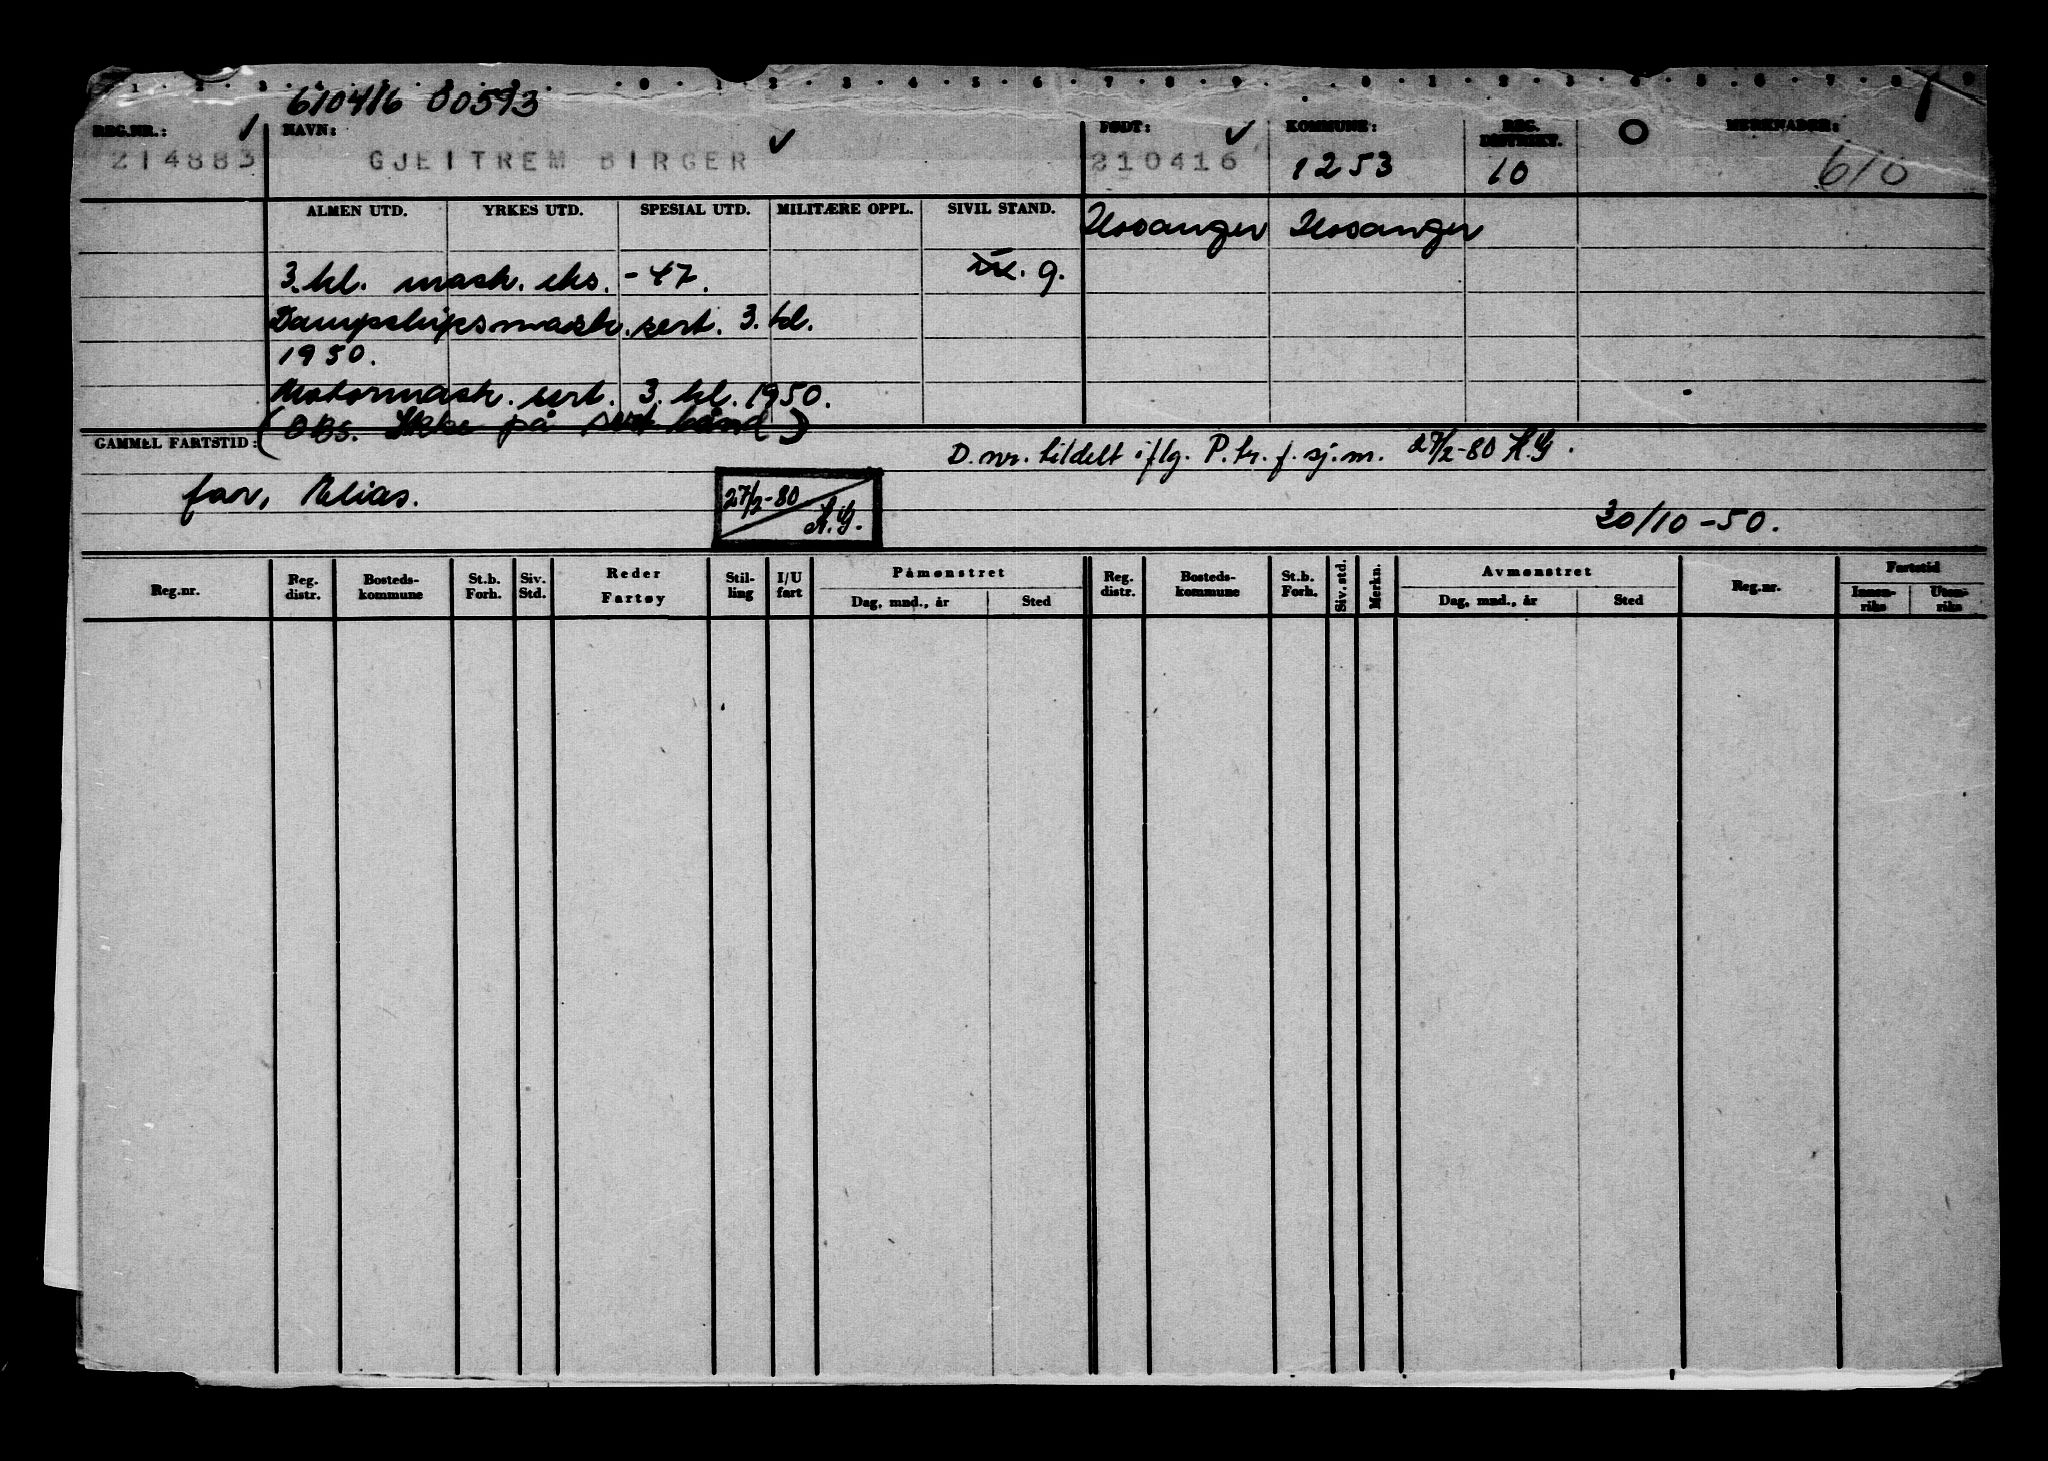 610416 00593
REG.NR.: NAVN: FØDT: KOMMUNE: REG. DISTRIKT. MERKNADER:
214883 GJEITREM BIRGER 210416 1253 10 610
ALMEN UTD. YRKES UTD. SPESIAL UTD. MILITÆRE OPPL. SIVIL STAND. Hosanger Hosanger
3. kl. mask. eks. - 47. g.
Dampskipsmask. sert. 3. kl.
1950.
Motormask. sert. 3. kl. 1950.
(OBS. Ikke på sert bånd)
GAMMEL FARTSTID: D.nr. tildelt iflg. P.tr. f. sj.m. 27/2-80 A.G.
far, Elias. 27/2-80 A.G.
30/10-50.
Reg.nr. Reg. distr. Bosteds- kommune St.b. Forh. Siv. Std. Reder Fartøy Stil- ling I/U fart Påmønstret Dag, mnd., år Sted Reg. distr. Bosteds- kommune St.b. Forh. Siv. std. Merkn. Avmønstret Dag, mnd., år Sted Reg.nr. Fartstid Innen- riks Uten- riks